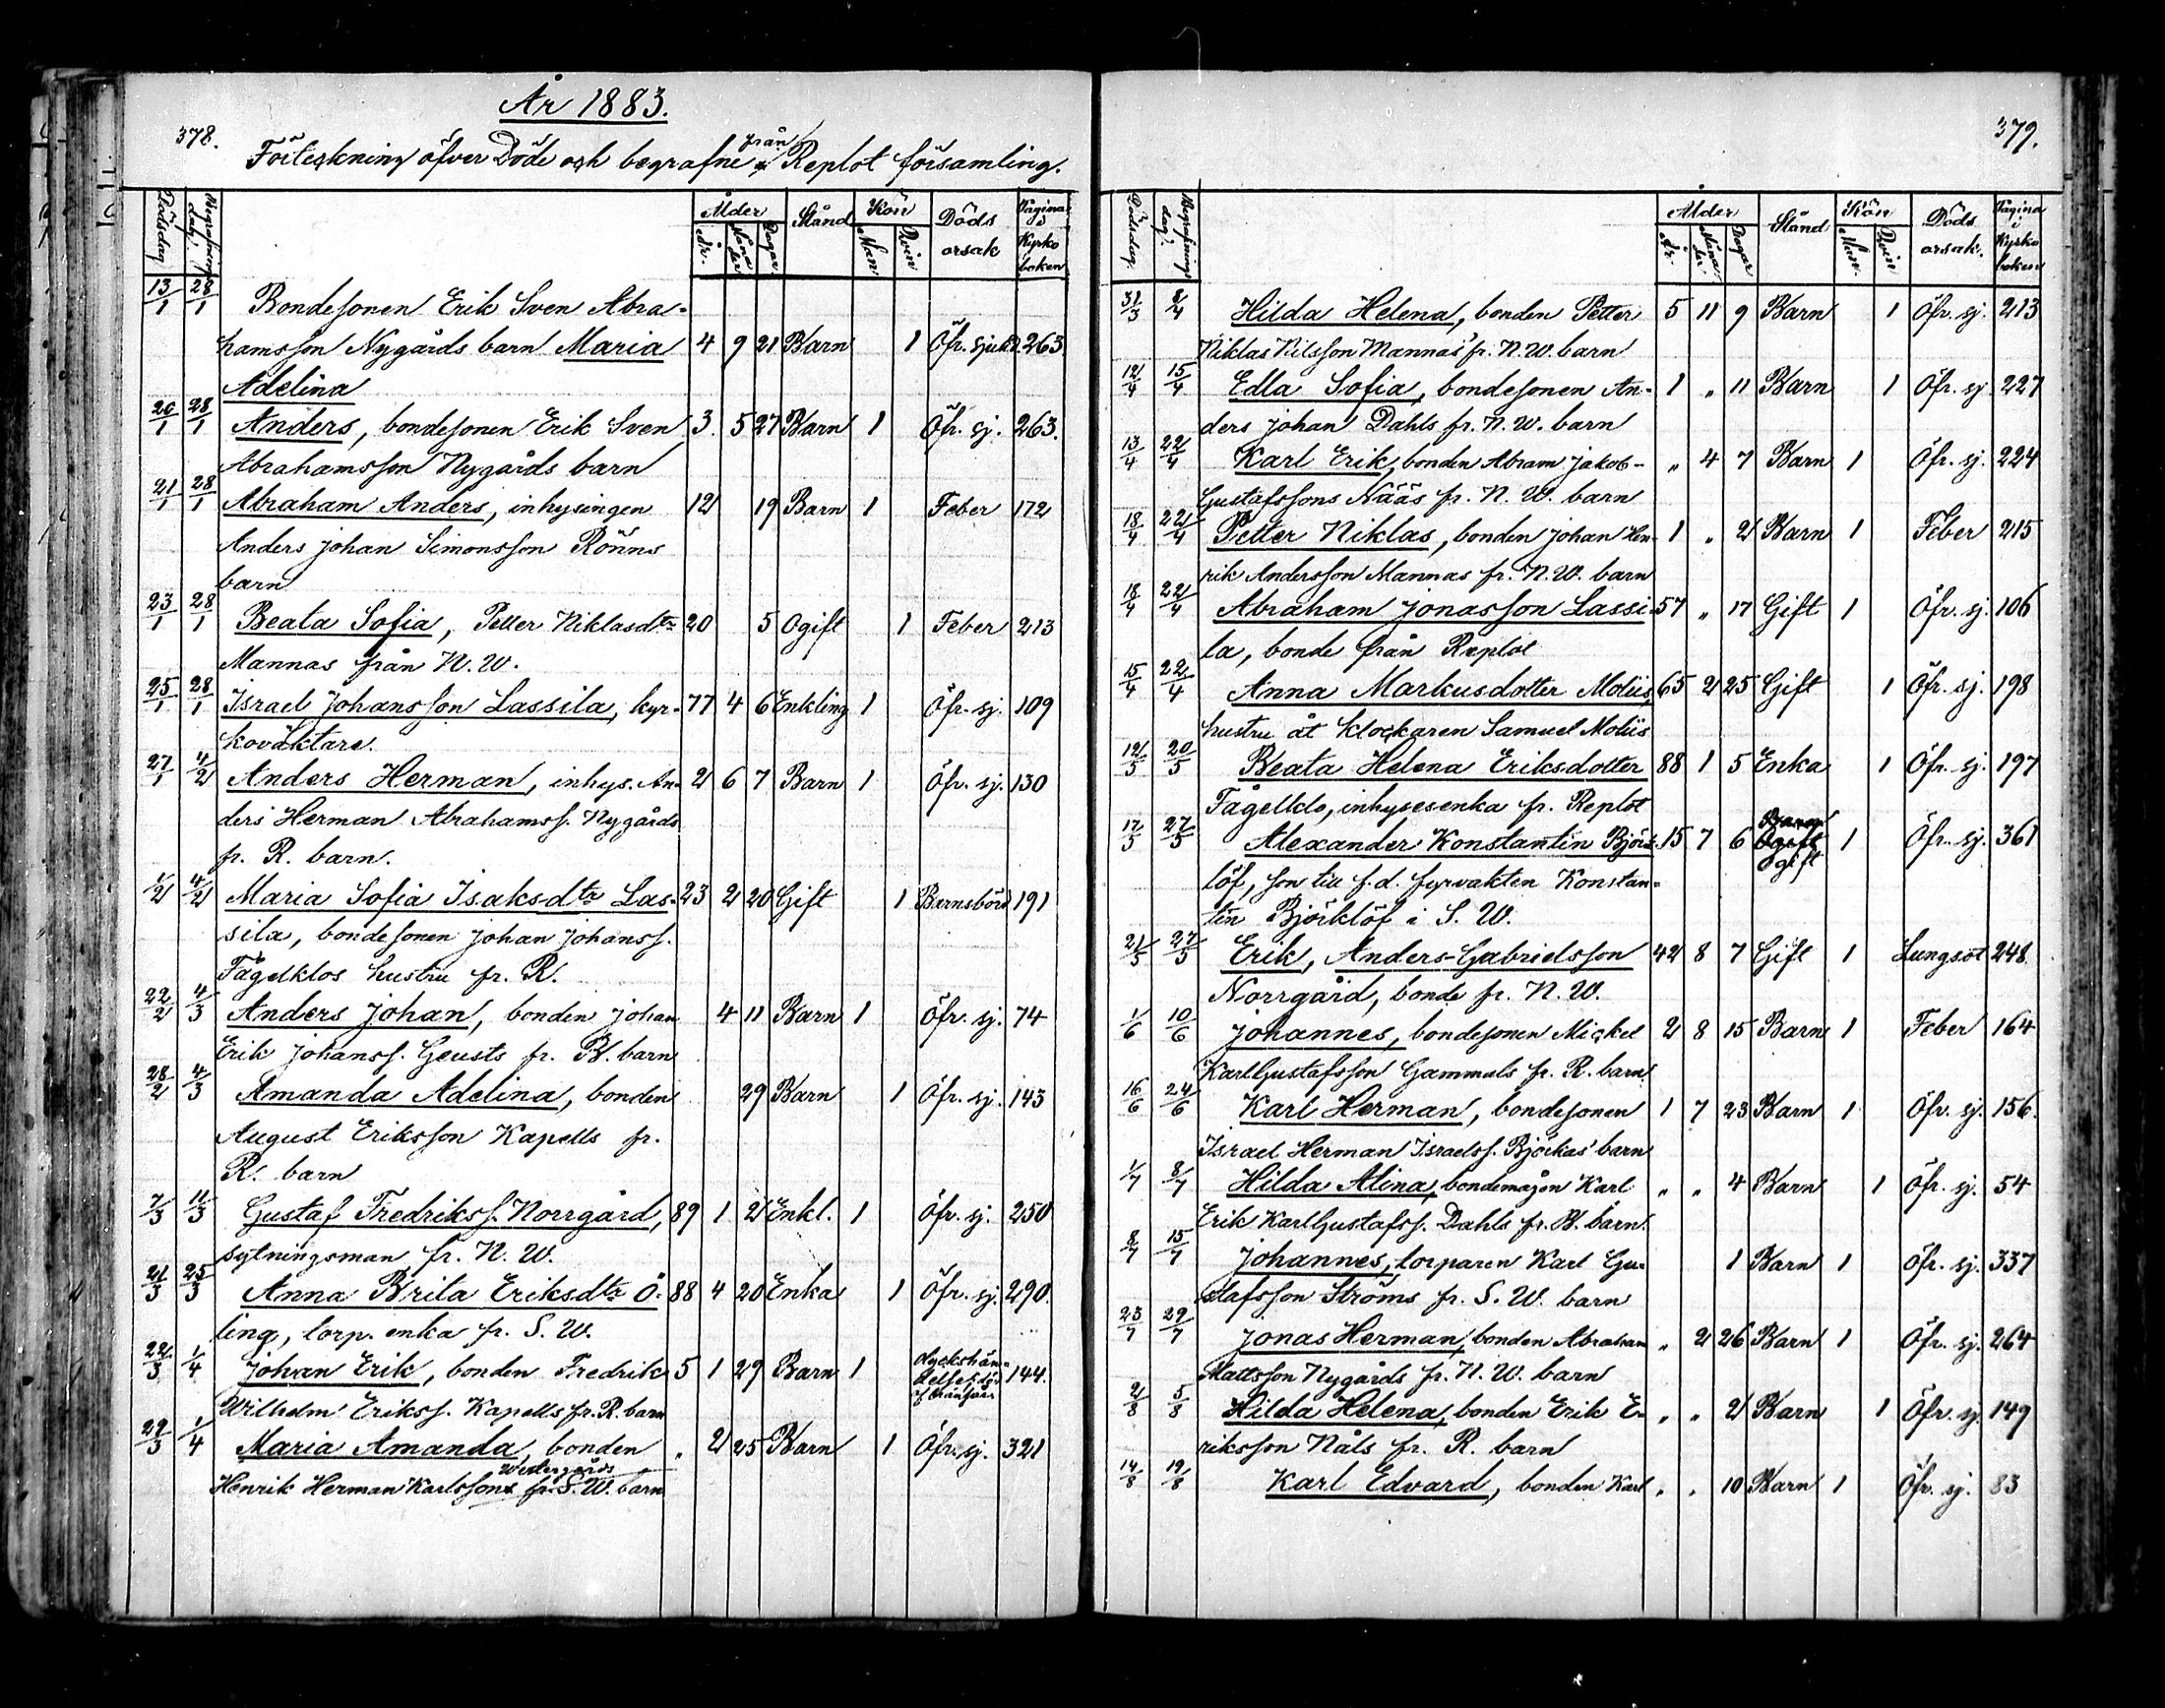 År 1883.
378.
Förteckning öfver Döde och begrafne från Replot församling.
Dödsdag Begrafningsdag Ålder Stånd Kön Döds orsak Pagina i Kyrko boken
År. Måna der Dagar Man Qvin
13/1 28/1 Bondesonen Erik Sven Abra-
hamsson Nygårds barn Maria 4 9 21 Barn 1 Öfr. sjukd. 263
Adelina
20/1 28/1 Anders, bondesonen Erik Sven 3 5 27 Barn 1 Öfr. sj. 263.
Abrahamsson Nygårds barn
21/1 28/1 Abraham Anders, inhysingen 12 19 Barn 1 Feber 172
Anders Johan Simonsson Rönns
barn
23/1 28/1 Beata Sofia, Petter Niklasdtr 20 5 Ogift 1 Feber 213
Mannas från N. W.
25/1 28/1 Israel Johansson Lassila, kyr- 77 4 6 Enkling 1 Öfr. sj. 109
koväktare.
27/1 4/2 Anders Herman, inhys. An- 2 6 7 Barn 1 Öfr. sj. 130
ders Herman Abrahamss. Nygårds
fr. R. barn.
1/2 4/2 Maria Sofia Isaksdtr Las- 23 2 20 Gift 1 Barnsbörd 191
sila, bondesonen Johan Johanss.
Fågelklos hustru fr. R.
22/2 4/3 Anders Johan, bonden Johan 4 11 Barn 1 Öfr. sj. 74
Erik Johanss. Geusts fr. B. barn
28/2 4/3 Amanda Adelina, bonden 29 Barn 1 Öfr. sj. 143
August Eriksson Kapells fr.
R. barn
7/3 11/3 Gustaf Fredrikss. Norrgård, 89 1 2 Enkl. 1 Öfr. sj. 250
sytningsman fr. N. W.
21/3 25/3 Anna Brita Eriksdtr Ö- 88 4 20 Enka 1 Öfr. sj. 290.
ling, torp. enka fr. S. W.
22/3 1/4 Johan Erik, bonden Fredrik 5 1 29 Barn 1 olyckshän- 144.
Wilhelm Erikss. Kapells fr. R. barn
29/3 1/4 Maria Amanda, bonden „ 2 25 Barn 1 Öfr. sj. 321
Westergårds
Henrik Herman Karlssons fr. S. W. barn
379.
Dödsdag. Begrafnings dag. Ålder Stånd Kön Döds orsak. Pagina i Kyrko boken
År. Måna der. Dagar Man. Qvin
31/3 8/4 Hilda Helena, bonden Petter 5 11 9 Barn 1 Öfr. sj. 213
Niklas Nilsson Mannas' fr. N. W. barn
12/4 15/4 Edla Sofia, bondesonen An- 1 „ 11 Barn 1 Öfr. sj. 227
ders Johan Dahls fr. N. W. barn
13/4 22/4 Karl Erik, bonden Abram Jakob- „ 4 7 Barn 1 Öfr. sj. 224
Gustafssons Nääs fr. N. W. barn
18/4 22/4 Petter Niklas, bonden Johan Hen- 1 „ 2 Barn 1 Feber 215
rik Andersson Mannas fr. N. W. barn
18/4 22/4 Abraham Jonasson Lassi- 57 „ 17 Gift 1 Öfr. sj. 106
la, bonde från Replot
15/4 22/4 Anna Markusdotter Moliis, 65 2 25 Gift 1 Öfr. sj. 198
hustru åt klockaren Samuel Moliis
12/5 20/5 Beata Helena Eriksdotter 88 1 5 Enka 1 Öfr. sj. 197
Fågelklo, inhysesenka fr. Replot
17/5 27/5 Alexander Konstantin Björk- 15 7 6 Ogift 1 Öfr. sj. 361
löf, son till f.d. fyrvakten Konstan-
tin Björklöf i S. W.
21/5 27/5 Erik, Anders-Gabrielsson 42 8 7 Gift 1 Lungsot 248
Norrgård, bonde fr. N. W.
1/6 10/6 Johannes, bondesonen Mickel 2 8 15 Barn 1 Feber 164
Karl Gustafsson Gammals fr. R. barn
16/6 24/6 Karl Herman, bondesonen 1 7 23 Barn 1 Öfr. sj. 156.
Israel Herman Israelss. Björkas' barn
1/7 8/7 Hilda Alina, bondemågen Karl „ „ 4 Barn 1 Öfr. sj. 54
Erik Karl Gustafss. Dahls fr. B. barn.
8/7 15/7 Johannes, torparen Karl Gu- 1 Barn 1 Öfr. sj. 337
stafsson Ströms fr. S. W. barn
23/7 29/7 Jonas Herman, bonden Abraham „ 2 26 Barn 1 Öfr. sj. 264
Mattsson Nygårds fr. N. W. barn
2/8 5/8 Hilda Helena, bonden Erik E- „ „ 2 Barn 1 Öfr. sj. 149
riksson Nåls fr. R. barn
14/8 19/8 Karl Edvard, bonden Karl „ „ 10 Barn 1 Öfr. sj. 83